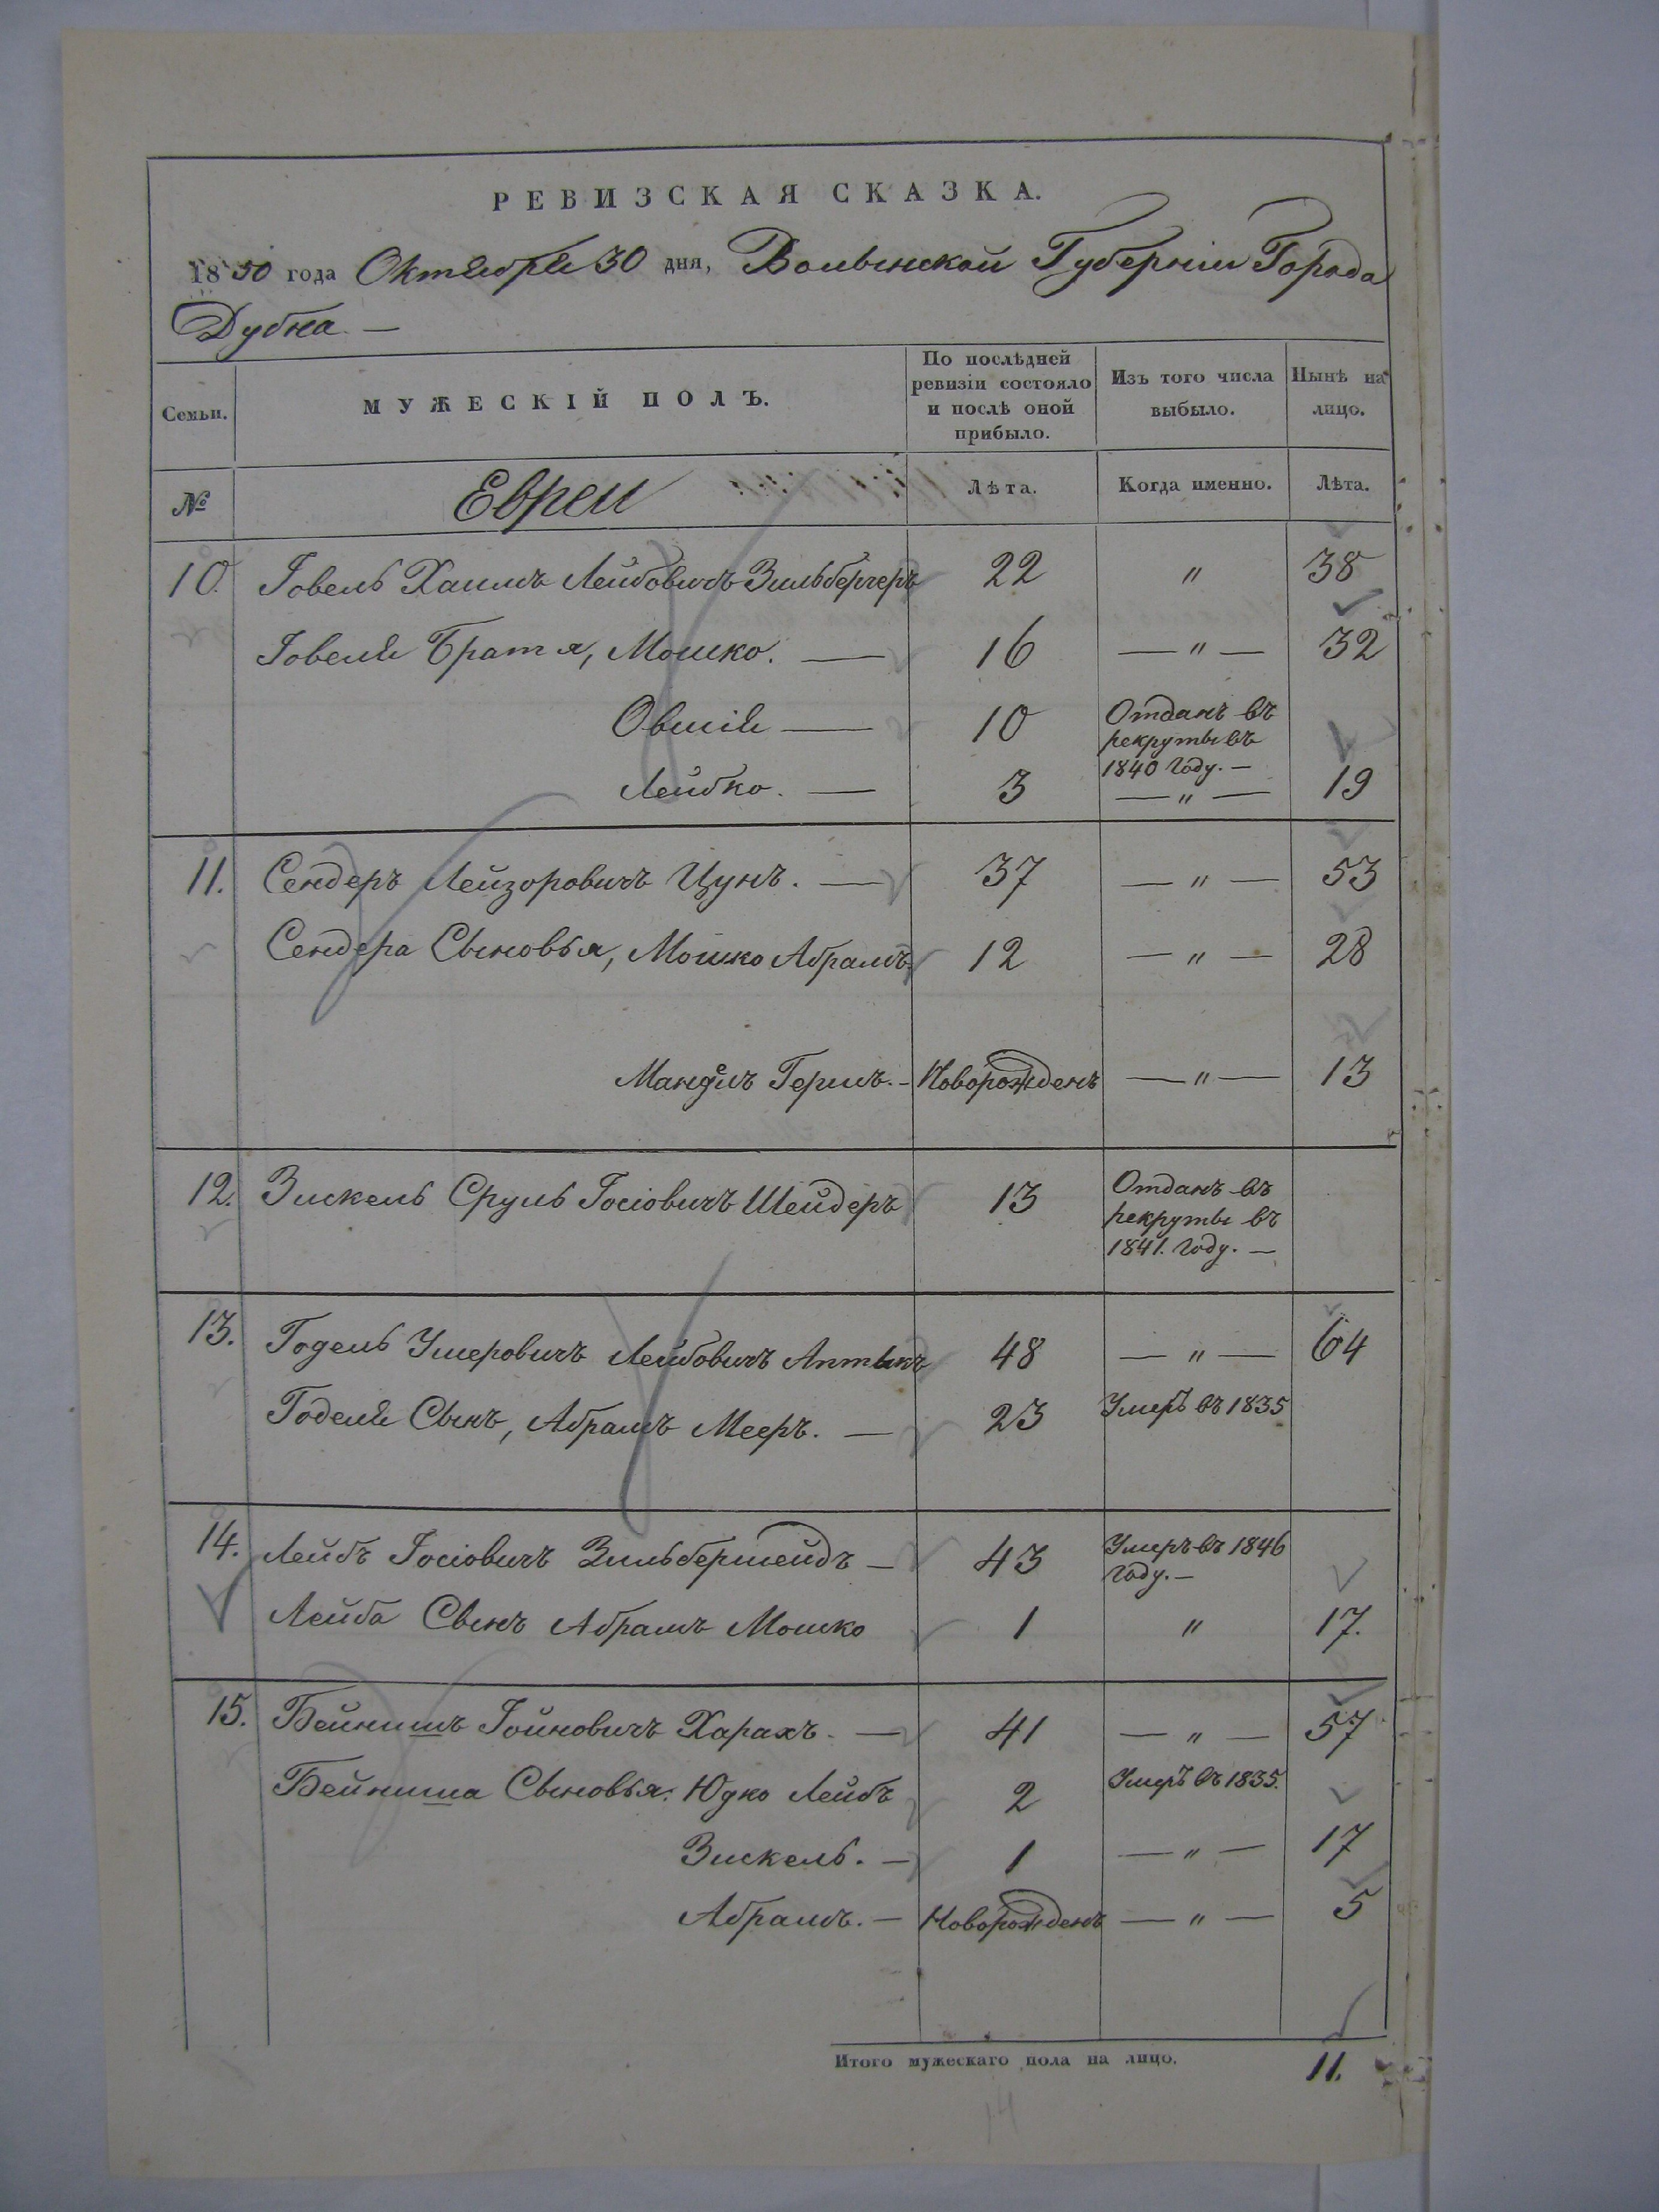 РЕВИЗСКАЯ СКАЗКА.
1850 года Октября 30 дня, Волынской Губерніи Города
Дубна. —
Семьи.
МУЖЕСКІЙ ПОЛЪ.
По послѣдней
ревизіи состояло
и послѣ оной
прибыло.
Изъ того числа
выбыло.
Нынѣ на
лицо.
№
Евреи
Лѣта.
Когда именно.
Лѣта.
10. Іовель Хаимъ Лейбовичъ Зильбергеръ 22 " 38
Іовеля Братья, Мошко. — 16 — " — 32
Овшія — 10 Отданъ въ
рекруты въ
1840 Году. —
Лейбко. — 3 — " — 19
11. Сендеръ Лейзоровичъ Цунъ. — 37 — " — 53
Сендера Сыновья, Мошко Абрамъ. 12 — " — 28
Мандель Гершъ. — Новорожденъ — " — 13
12. Зискель Сруль Іосіовичъ Шейдеръ 13 Отданъ въ
рекруты въ
1841. Году. —
13. Годель Умеровичъ Лейбовичъ 48 — " — 64
Годеля Сынъ, Абрамъ Мееръ. — 23 Умеръ въ 1835
14. Лейбъ Іосіовичъ Зильбершейдъ — 43 Умеръ въ 1846
Году. —
Лейба Сынъ Абрамъ Мошко 1 " 17.
15. Бейнишъ Іойновичъ Харахъ. — 41 — " — 57
Бейниша Сыновья: Юдко Лейбъ 2 Умеръ въ 1835.
Зискель. — 1 — " — 17
Абрамъ. — Новорожденъ — " — 5
Итого мужескаго пола на лицо. 11.
14